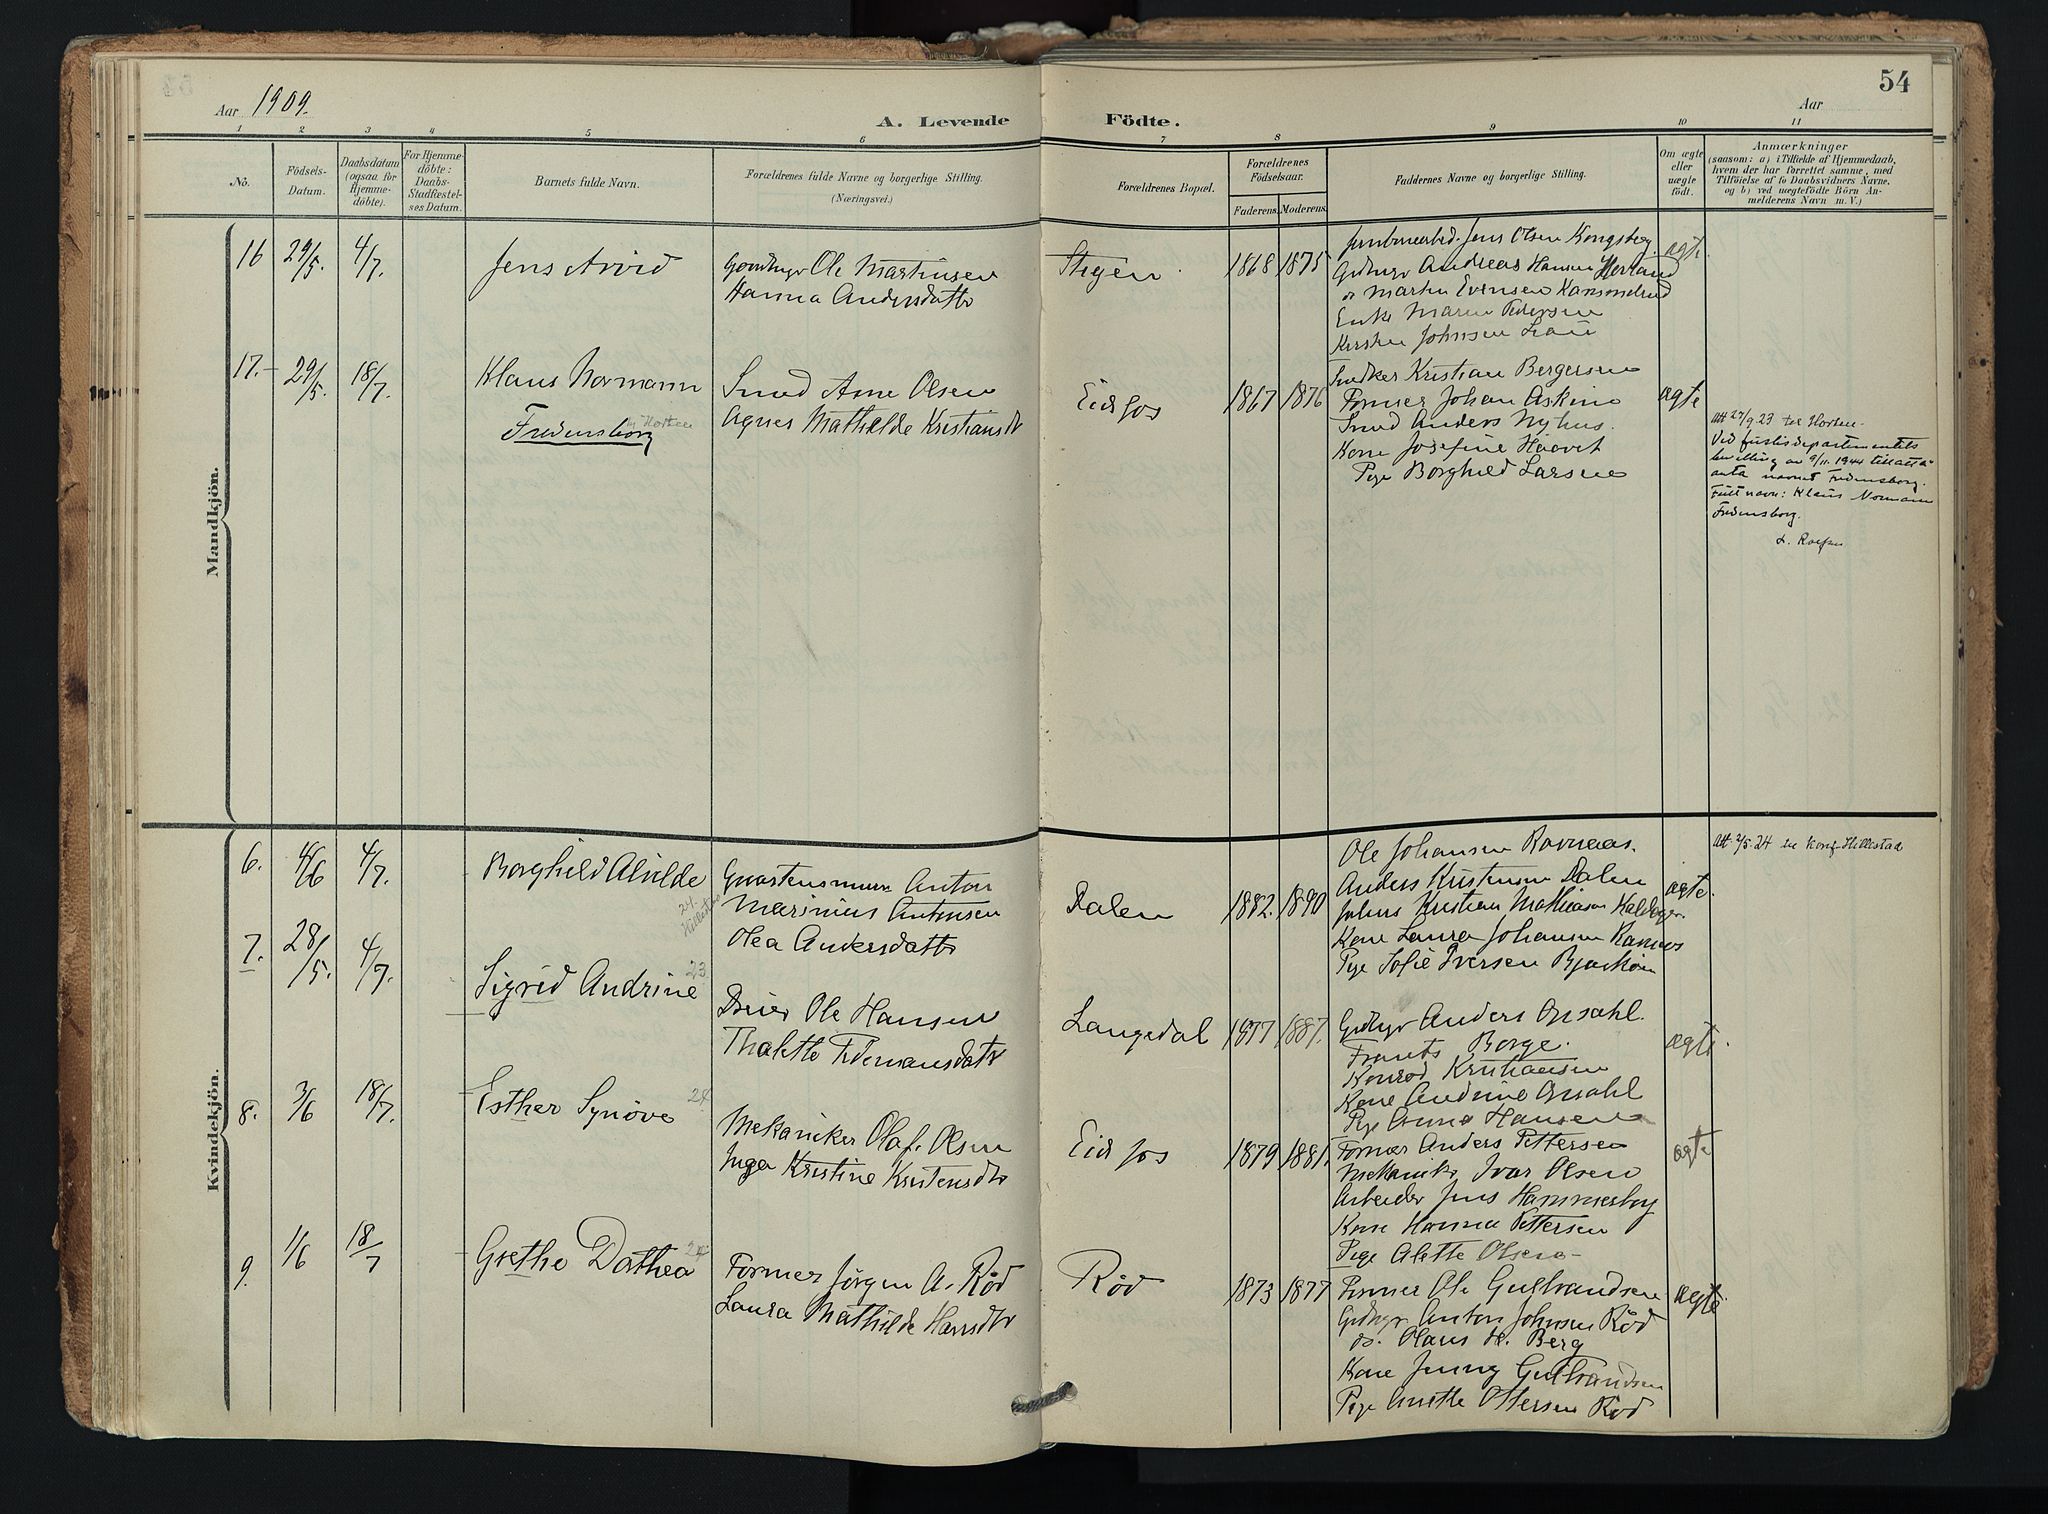 54
Aar 1909.
A. Levende Födte.
Aar
1 2 3 4 5 6 7 8 9 10 11
No.
Födsels-
Datum.
Daabsdatum
(ogsaa for
Hjemme-
döbte).
For Hjemme-
döbte:
Daabs-
Stadfestel-
ses Datum.
Barnets fulde Navn.
Forældrenes fulde Navne og borgerlige Stilling.
(Næringsvei.)
Forældrenes Bopæl.
Forældrenes
Födselsaar.
Faderens. Moderens.
Faddernes Navne og borgerlige Stilling.
Om ægte
eller
uægte
födt.
Anmærkninger
(saasom: a) i Tilfælde af Hjemmedaab,
hvem der har forrettet samme, med
Tilföielse af to Daabsvidners Navne,
og b) ved uægtefödte Börn An-
melderens Navn m. V.)
Mandkjön.
16 29/5. 4/7. Jens Arvid
Ole Martinsen
Hanna Andersdatter
Stigen 1868 1875
Jens Olsen Kongsberg
Andreas Hansen
Martin Evensen
Enke Maren Pedersen
Johnsen
ægte
17. 29/5. 18/7. Klaus Normann
Fredensborg
Horten
Smed Arne Olsen
Agnes Mathilde Kristiansdtr
Eidsfos 1867 1876
Snedker Kristian Bergersen
Former Johan Askim
Smed Anders Nyhus.
Kone Josefine Haavet
Pige Borghild Larsen
ægte
Att 27/9.23 til Horten.
Ved justisdepartementets
bevilling av 9/11.1944 tillatt å
anta navnet Fredensborg.
Fullt navn: Klaus Normann
Fredensborg.
Kvindekjön.
6. 4/6 4/7. Borghild Alvilde
24.
Hillestad
Anton
Marinius Antonsen
Olea Andersdatter
Dalen 1882. 1890
Ole Johansen Ravnaas.
Anders Kristensen Dalen
Julius Kristian Mathiasen
Kone Laura Johansen
Pige Sofie Iversen
ægte.
Att 2/5.24 til konf. Hillestad
7. 28/5. 4/7. Sigrid Andrine 23
Ole Hansen
Thalette
Langedal 1877 1887.
Anders
Frants Borge.
Konrad Kristiansen
Kone Andrine
Pige Anna Hansen
ægte.
8. 3/6 18/7. Esther Synöve 24
Mekaniker Olaf Olsen
Inga Kristine Kristensdtr
Eidsfos 1879 1881.
Former Anders Pettersen
Mekaniker Ivar Olsen
Arbeider Jens Hammersborg
Kone Hanna Pettersen
Pige Alette Olsen
ægte
9. 1/6 18/7 Grethe Dorthea 24
Former Jörgen A. Röd
Laura Mathilde Hansdtr
Röd 1873 1877
Former Ole Gulbrandsen
Anton Johnsen Röd
do. Olaus H. Berg
Kone Jenny Gulbrandsen
Pige Anette Ottersen Röd
ægte